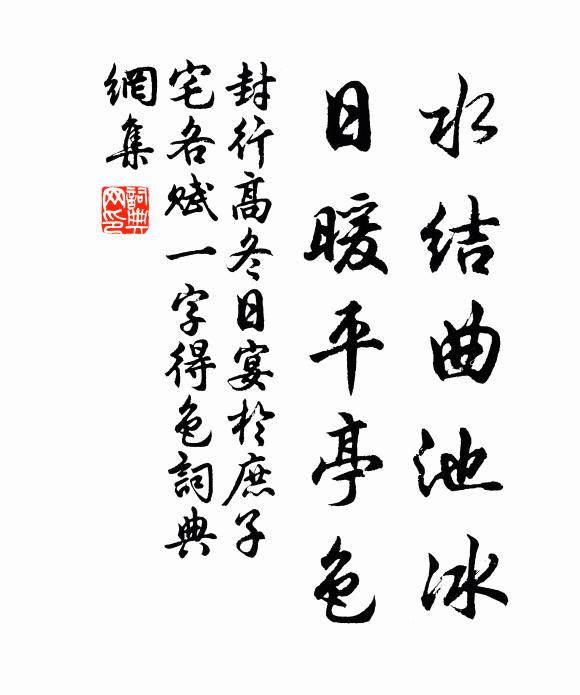 水结曲池冰
日暖平亭色
封行高冬日宴於庶子
宅各赋一字得色詞典
網集
詞典網印